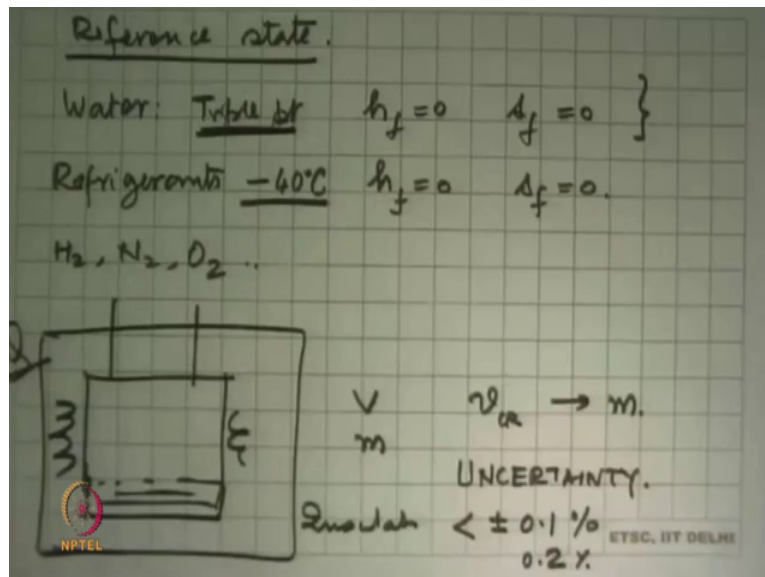 Reference state.
Water: Triple pt h_f = 0 s_f = 0 }
Refrigerants -40°C h_f = 0 s_f = 0.
H₂, N₂, O₂ ..
V v_CR → m.
m
UNCERTAINTY.
< ± 0.1 %
0.2 %
ETSC, IIT DELHI
NPTEL